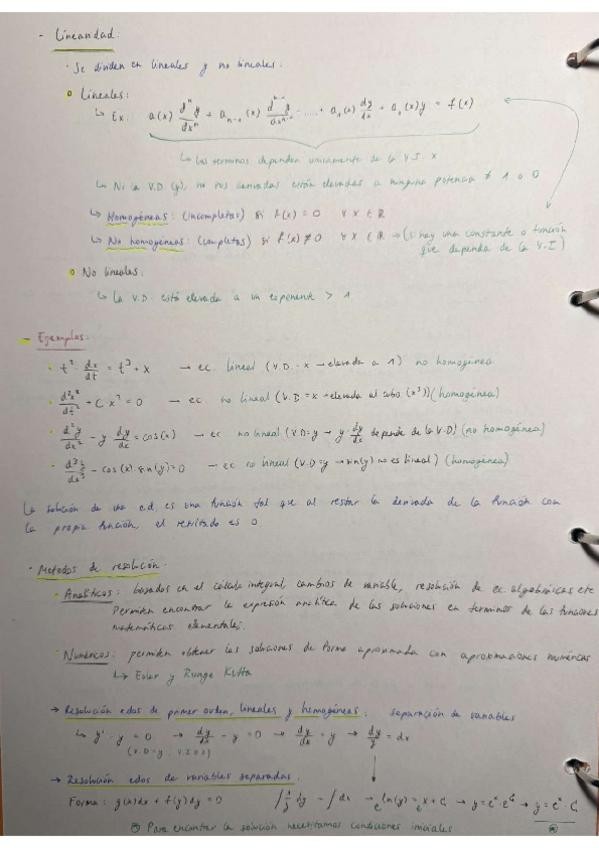 - Linealidad:
· Se dividen en lineales y no lineales:
o Lineales:
↳ Ex: a(x) dⁿy/dxⁿ + aₙ₋₁(x) dⁿ⁻¹y/dxⁿ⁻¹ + ..... + a₁(x) dy/dx + a₀(x)y = f(x)
↳ Los terminos dependen unicamente de la V.I. x
↳ Ni la V.D. (y), ni sus derivadas están elevadas a ninguna potencia ≠ 1 o 0
↳ Homogéneas: (incompletas) si f(x) = 0 ∀ x ∈ ℝ
↳ No homogéneas: (completas) si f(x) ≠ 0 ∀ x ∈ ℝ → (si hay una constante o función
que dependa de la V.I)
o No lineales:
↳ La V.D. está elevada a un exponente > 1
- Ejemplos:
· t² · dx/dt = t³ + x → ec. lineal (V.D. = x → elevada a 1) no homogénea
+ C · x³ = 0 → ec. no lineal (V.D = x → elevada al cubo (x³)) (homogénea)
· d²y/dx² - y dy/dx = cos(x) → ec no lineal (V.D = y → y · dy/dx depende de la V.D) (no homogénea)
· d³y/dx³ - cos(x) · sin(y) = 0 → ec no lineal (V.D = y → sin(y) no es lineal) (homogénea)
La solución de una e.d. es una función tal que al restar la derivada de la función con
la propia función, el resultado es 0
· Metodos de resolución:
· Analíticos: basados en el cálculo integral, cambios de variable, resolución de ec. algebraicas etc
Permiten encontrar la expresión analítica de las soluciones en terminos de las funciones
matemáticas elementales.
· Numéricos: permiten obtener las soluciones de forma aproximada con aproximaciones numéricas
↳ Euler y Runge Kutta
→ Resolución edos de primer orden, lineales y homogéneas: separación de variables
↳ y' - y = 0 → dy/dx - y = 0 → dy/dx = y → dy/y = dx
(V.D = y, V.I = x)
→ Resolución edos de variables separadas:
Forma: g(x)dx + f(y)dy = 0 ∫ 1/y dy = ∫ dx → e^ln(y) = e^x+C → y = eˣ · e^C → y = eˣ · C
Para encontrar la solución necesitamos condiciones iniciales